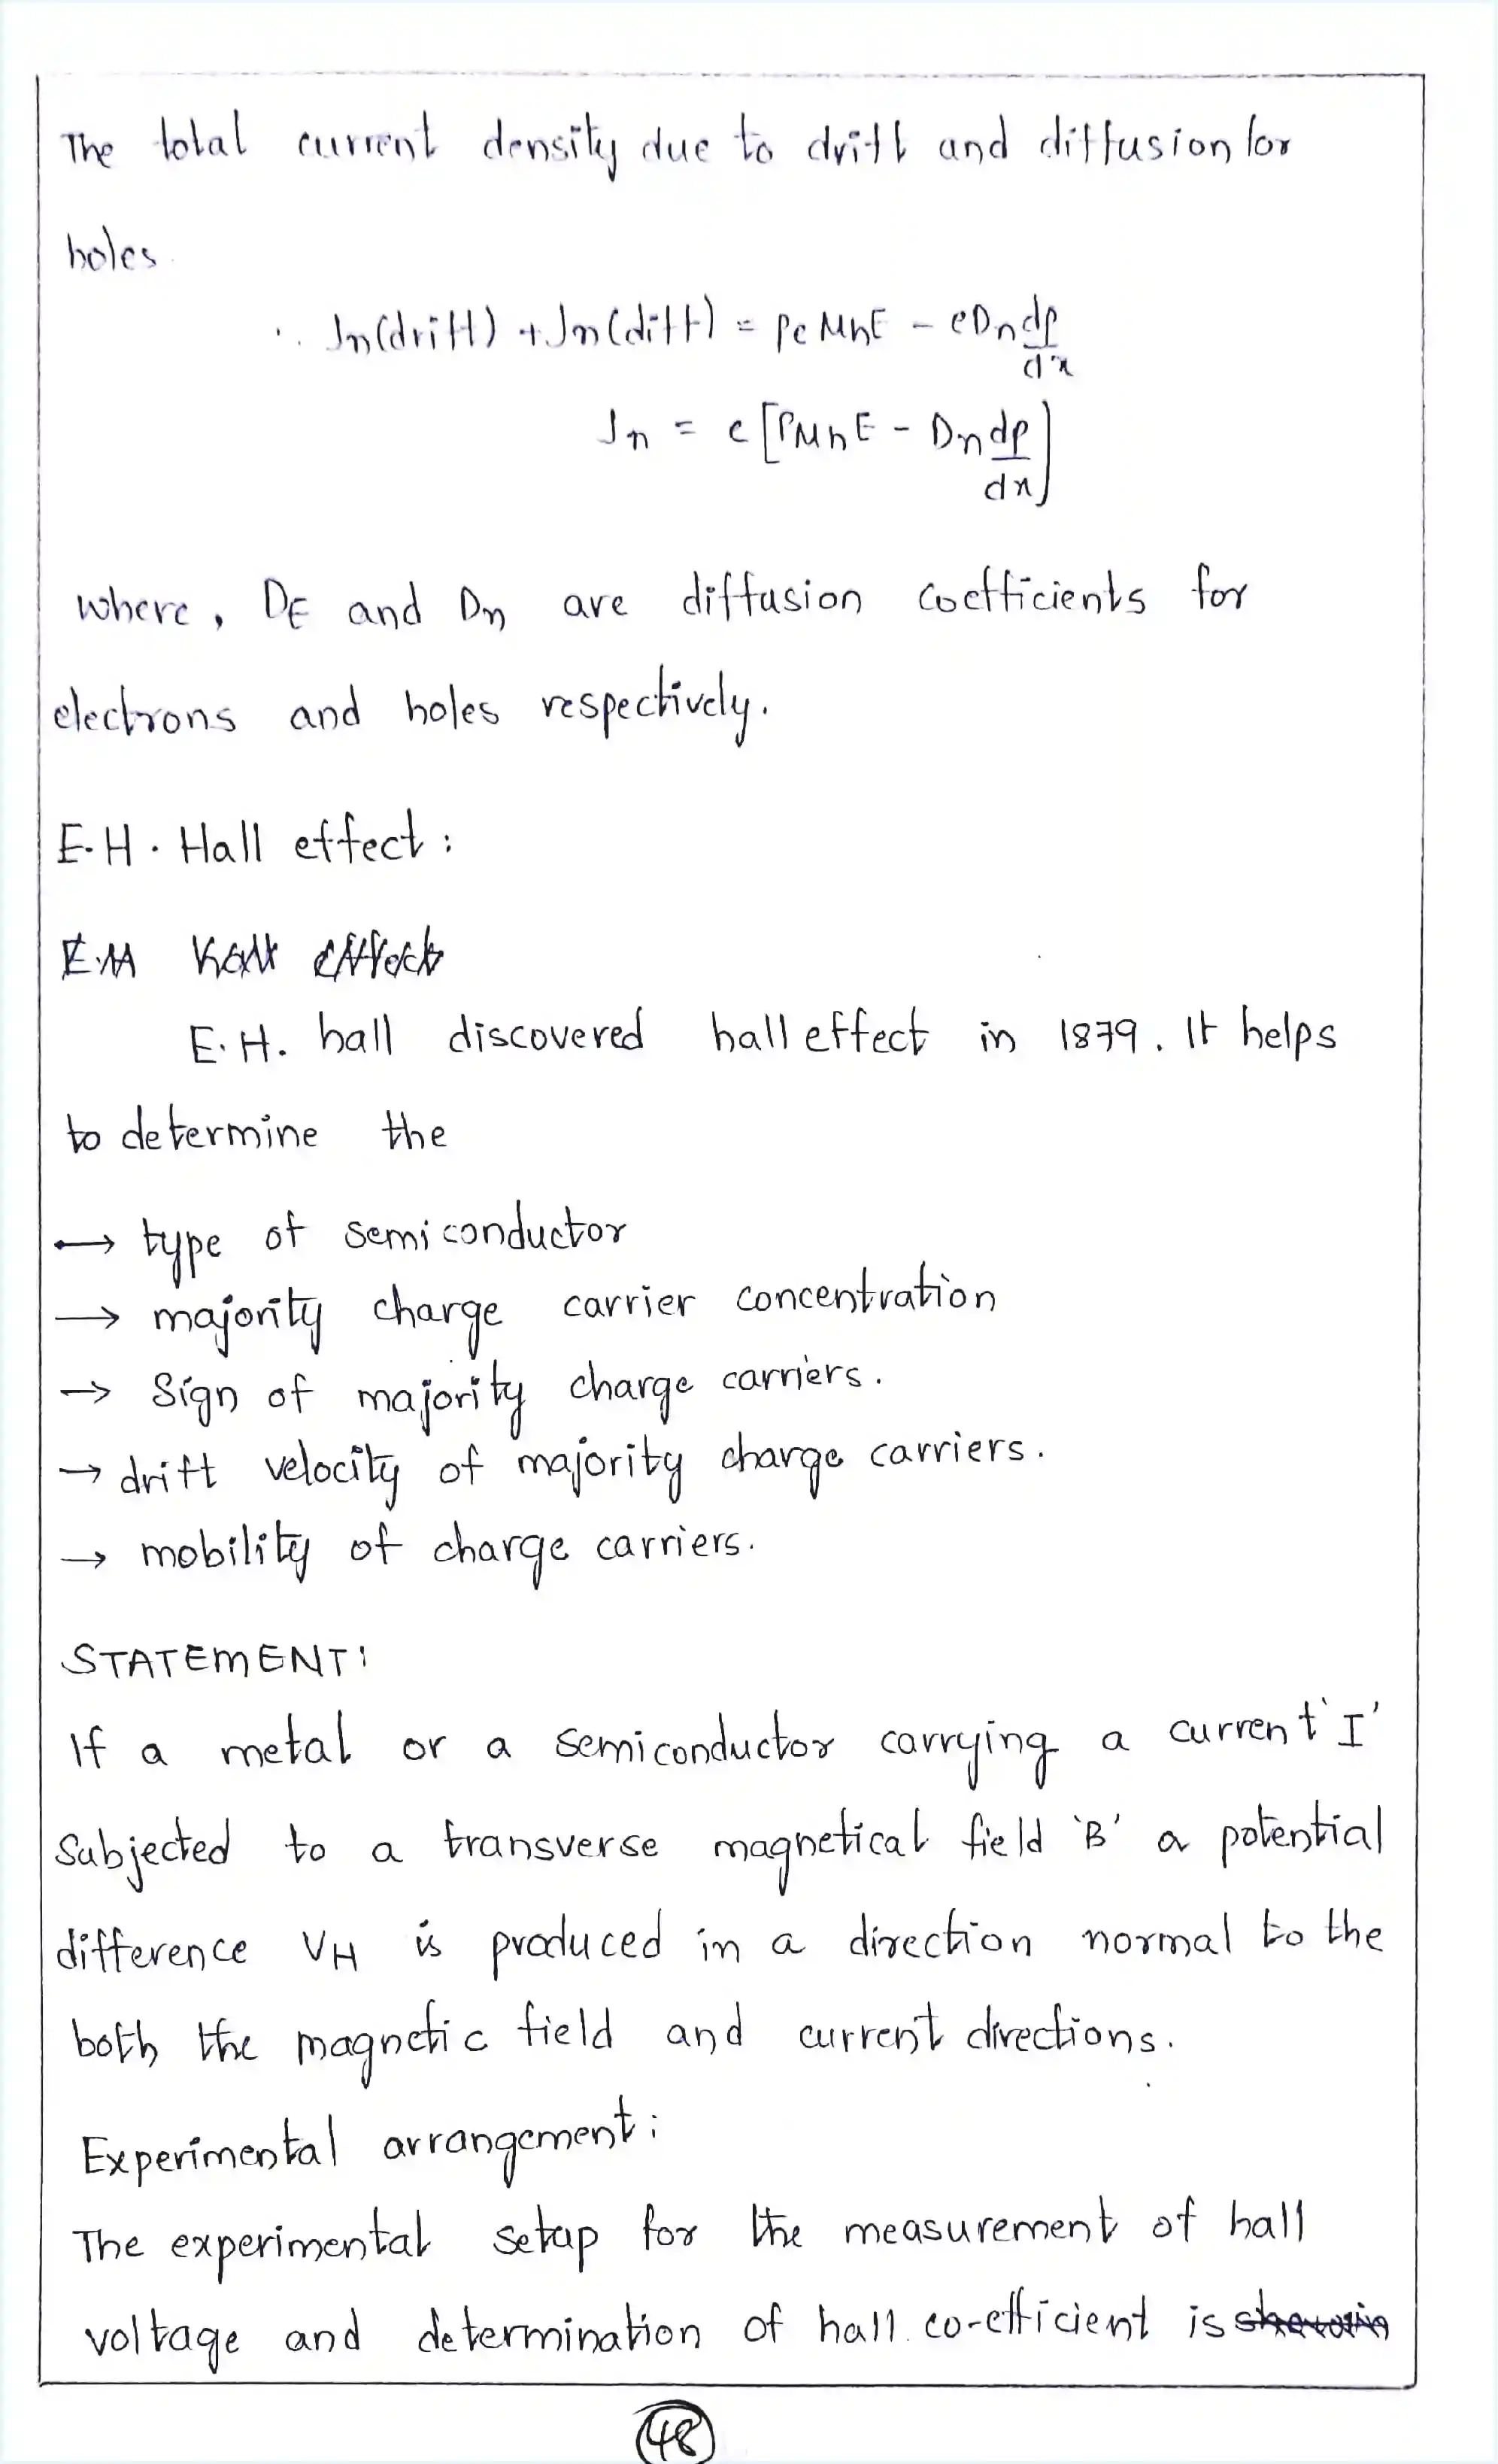 The total current density due to drift and diffusion for
holes.
∴ Jn(drift) + Jn(diff) = peμhE - eDn dp/dx
Jn = e[PμhE - Dn dp/dx]
where, DE and Dn are diffusion coefficients for
electrons and holes respectively.
E.H. Hall effect:
E.H. hall discovered hall effect in 1879. It helps
to determine the
→ type of semiconductor
→ majority charge carrier concentration
→ Sign of majority charge carriers.
→ drift velocity of majority charge carriers.
→ mobility of charge carriers.
STATEMENT:
If a metal or a semiconductor carrying a current 'I'
Subjected to a transverse magnetical field 'B' a potential
difference VH is produced in a direction normal to the
both the magnetic field and current directions.
Experimental arrangement:
The experimental setup for the measurement of hall
voltage and determination of hall co-efficient is
48